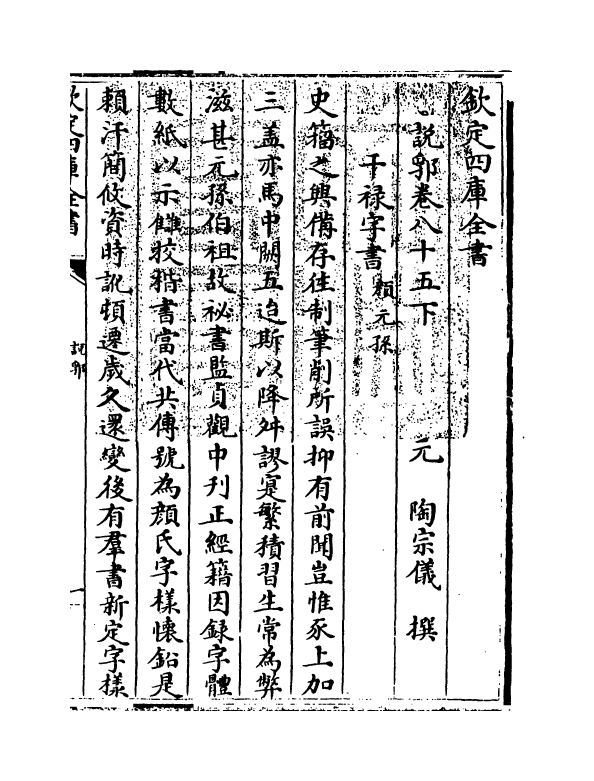 欽定四庫全書
說郛卷八十五下
元 陶宗儀 撰
干祿字書 顔元孫
史籀之興備存往制筆削所誤抑有前聞豈惟豕上加
三盖亦馬中闕五迨斯以降舛謬寔繁積習生常為弊
滋甚元孫伯祖故祕書監貞觀中刋正經籍因録字體
數紙以示讎校楷書當代共傳號為顔氏字樣懷鉛是
賴汗簡攸資時訛頓遷歲久還變後有羣書新定字樣
欽定四庫全書
說郛
一